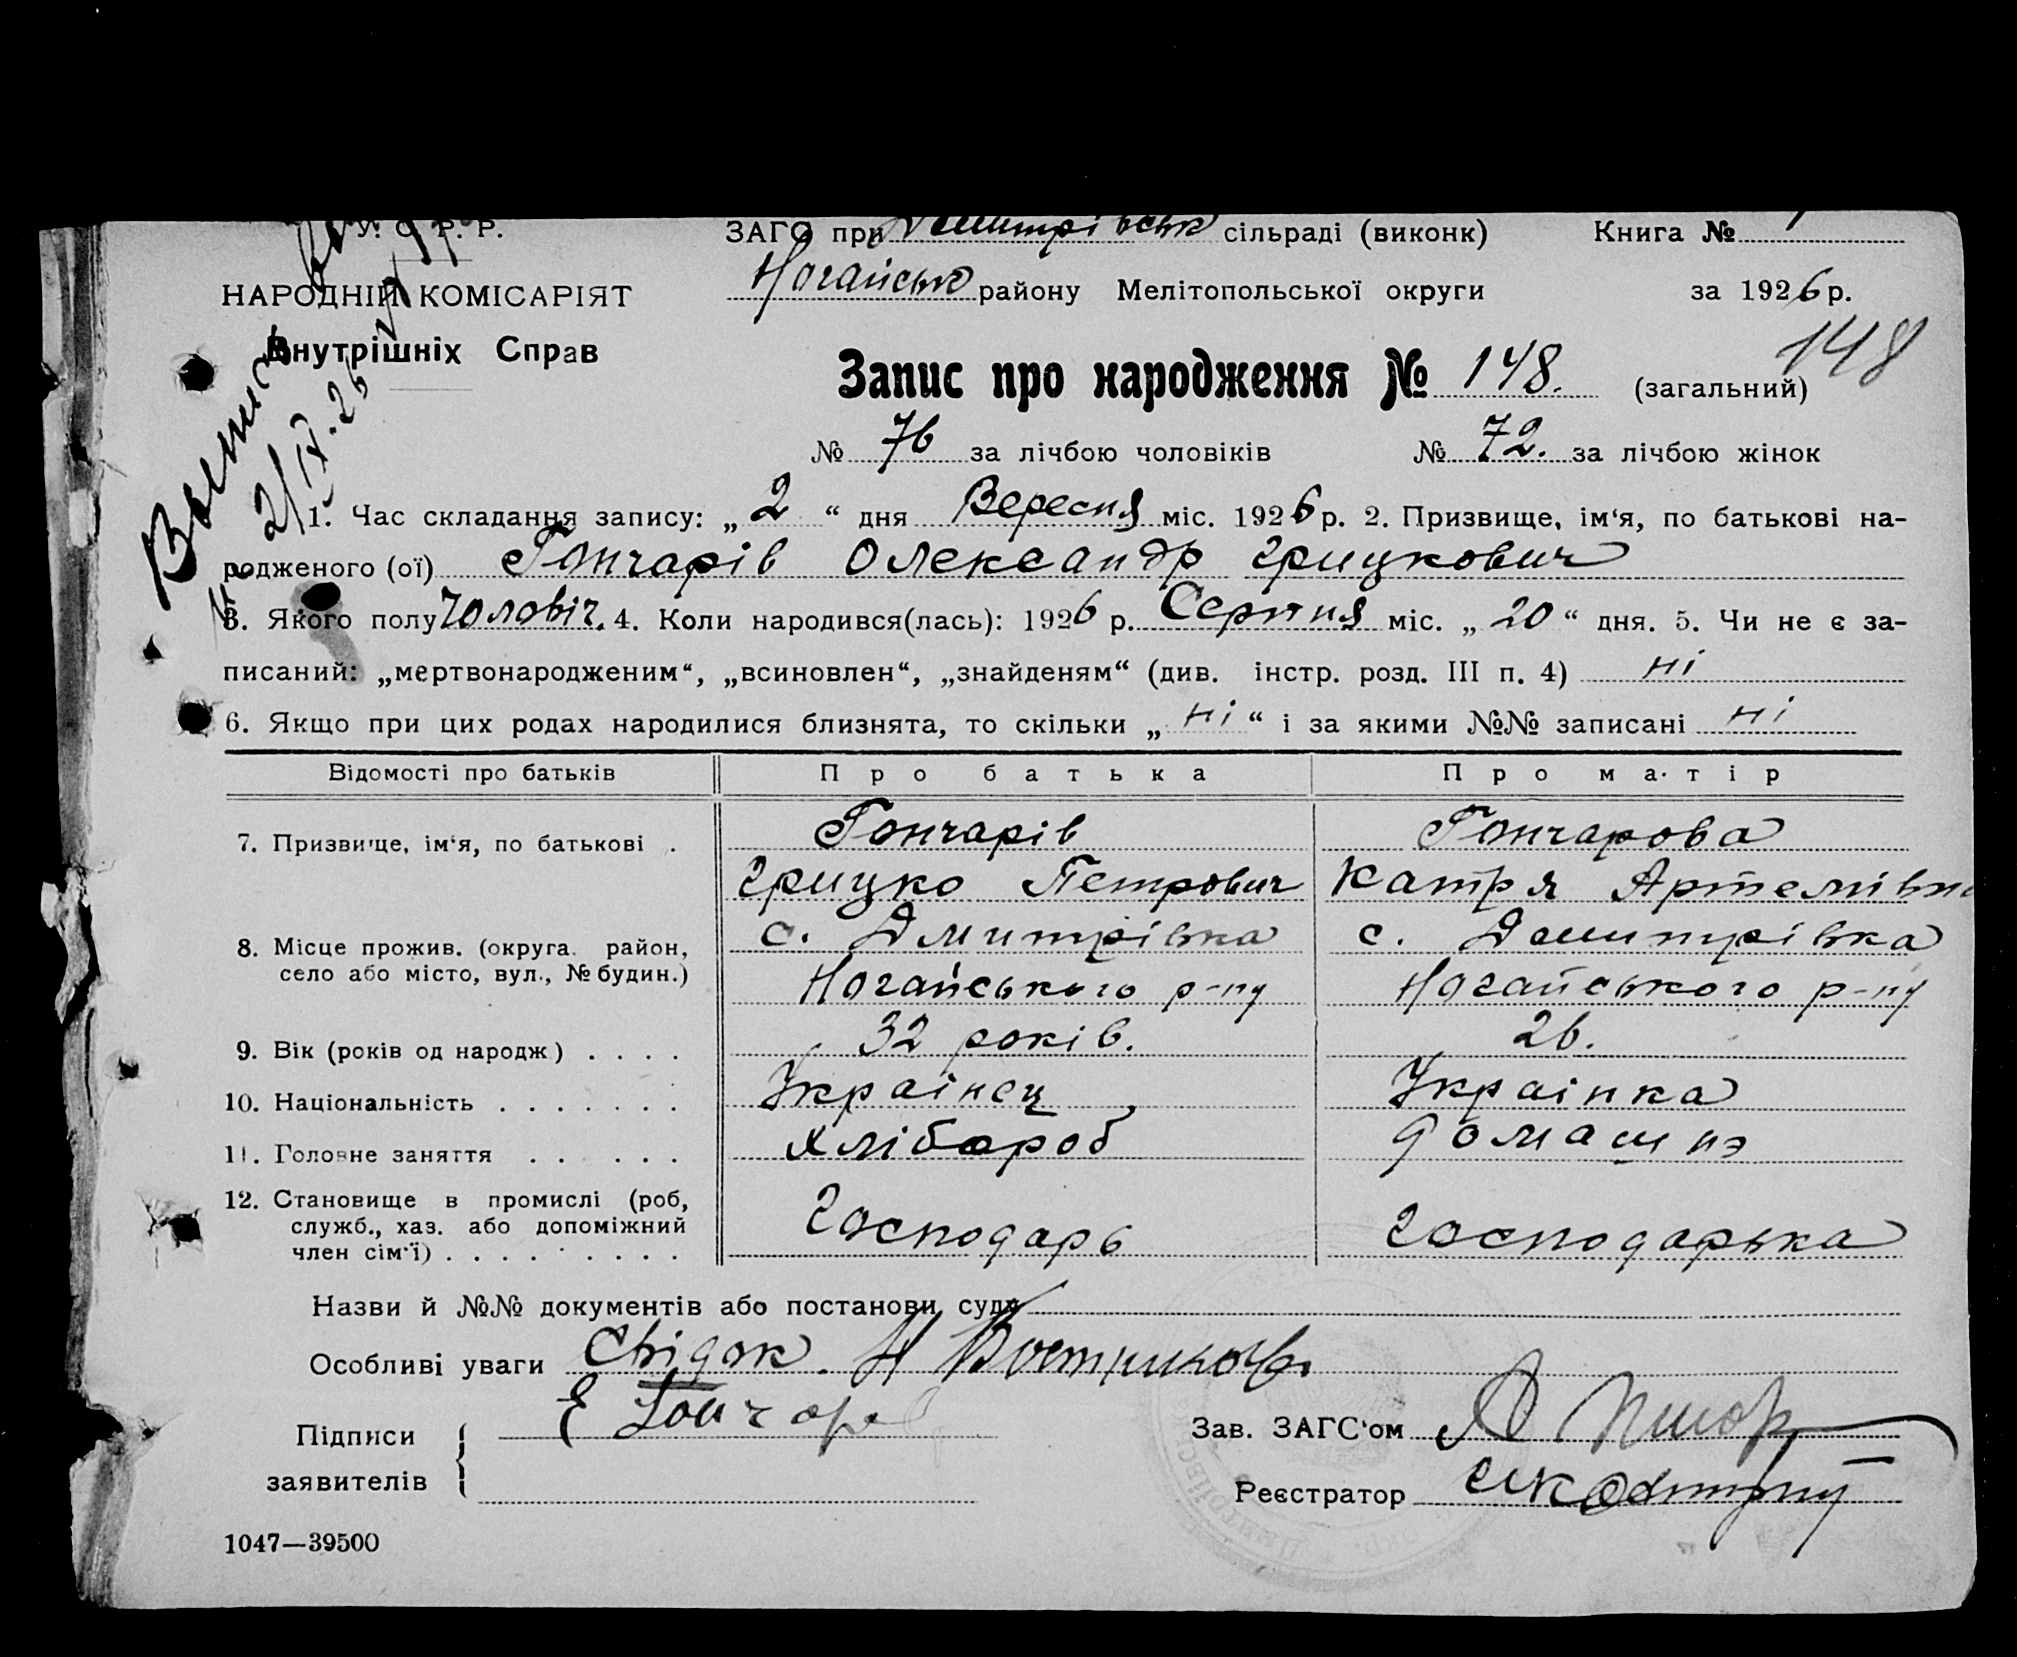 У. С. Р. Р.
ЗАГС при Дмитрівськ сільраді (виконк) Книга №
НАРОДНІЙ КОМІСАРІЯТ
Ногайсько району Мелітопольської округи за 1926 р.
Внутрішніх Справ
Запис про народження № 148. (загальний) 148
№ 76 за лічбою чоловіків № 72. за лічбою жінок
Выпись
2/IX.26
1. Час складання запису: „ 2 “ дня Вересня міс. 1926 р. 2. Призвище, ім‘я, по батькові на-
родженого (ої) Гончарів Олександр Грицкович
3. Якого полу Чоловіч. 4. Коли народився(лась): 1926 р. Серпня міс. „ 20 “ дня. 5. Чи не є за-
писаний: „мертвонародженим“, „всиновлен“, „знайденям“ (див. інстр. розд. III п. 4) ні
6. Якщо при цих родах народилися близнята, то скільки „ ні “ і за якими №№ записані ні
Відомості про батьків Про батька Про матір
7. Призвище, ім‘я, по батькові . Гончарів Гончарова
Грицко Петрович Катря Артемівна
8. Місце прожив. (округа. район, с. Дмитрівка с. Дмитрівка
село або місто, вул., № будин.) Ногайського р-ну Ногайського р-ну
9. Вік (років од народж) . . . . 32 років. 26.
10. Національність . . . . . . . Украінец Украінка
11. Головне заняття . . . . . . Хлібороб Домашнэ
12. Становище в промислі (роб,
служб., хаз. або допоміжний Господарь Господарька
член сім‘ї) . . . . . . . . .
Назви й №№ документів або постанови суда
Особливі уваги Свідок. Н Востриков
Підписи Е Гончар
заявителів
Зав. ЗАГС‘ом
Реєстратор
1047—39500